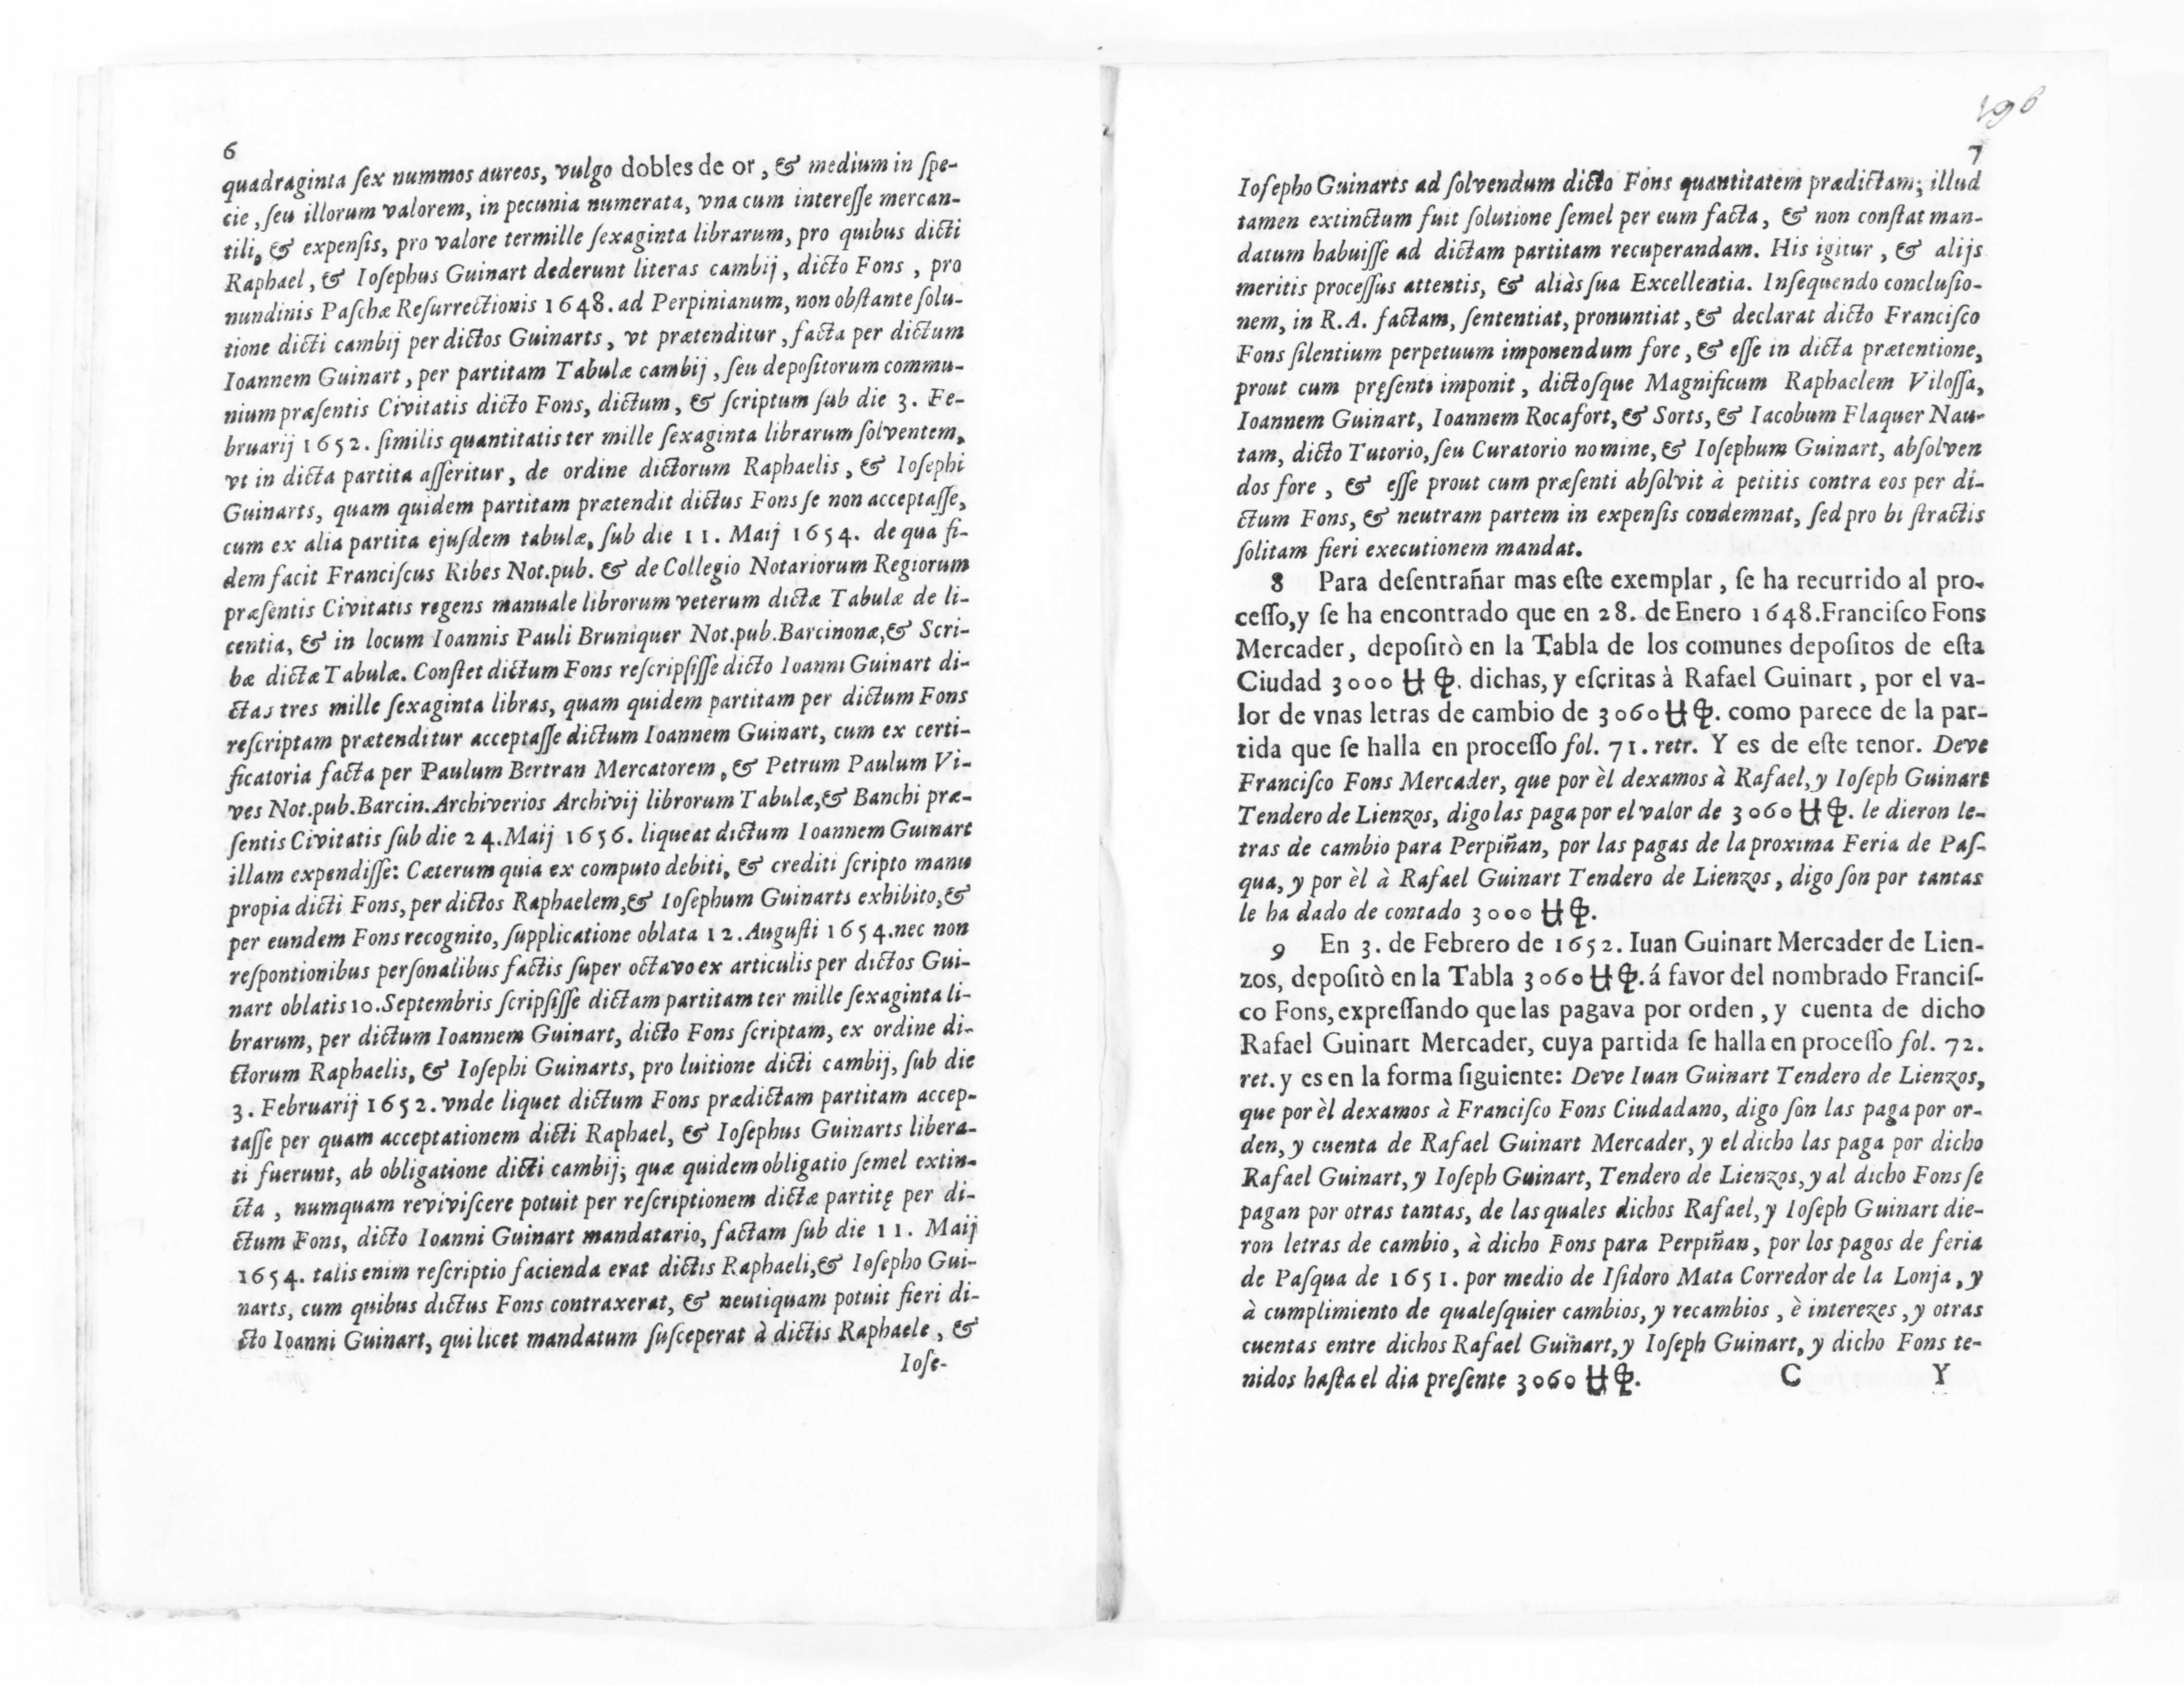 6
quadraginta ſex nummos aureos, vulgo dobles de or, & medium in ſpe-
cie, ſeu illorum valorem, in pecunia numerata, vna cum intereſſe mercan-
tili, & expenſis, pro valore termille ſexaginta librarum, pro quibus dicti
Raphael, & Ioſephus Guinart dederunt literas cambij, dicto Fons, pro
nundinis Paſchæ Reſurrectionis 1648. ad Perpinianum, non obſtante ſolu-
tione dicti cambij per dictos Guinarts, vt prætenditur, facta per dictum
Ioannem Guinart, per partitam Tabulæ cambij, ſeu depoſitorum commu-
nium præſentis Civitatis dicto Fons, dictum, & ſcriptum ſub die 3. Fe-
bruarij 1652. ſimilis quantitatis ter mille ſexaginta librarum ſolventem,
vt in dicta partita aſſeritur, de ordine dictorum Raphaelis, & Ioſephi
Guinarts, quam quidem partitam prætendit dictus Fons ſe non acceptaſſe,
cum ex alia partita ejuſdem tabulæ, ſub die 11. Maij 1654. de qua fi-
dem facit Franciſcus Ribes Not.pub. & de Collegio Notariorum Regiorum
præſentis Civitatis regens manuale librorum veterum dictæ Tabulæ de li-
centia, & in locum Ioannis Pauli Bruniquer Not.pub.Barcinonæ,& Scri-
bæ dictæ Tabulæ. Conſtet dictum Fons reſcripſiſſe dicto Ioanni Guinart di-
ctas tres mille ſexaginta libras, quam quidem partitam per dictum Fons
reſcriptam prætenditur acceptaſſe dictum Ioannem Guinart, cum ex certi-
ficatoria facta per Paulum Bertran Mercatorem, & Petrum Paulum Vi-
ves Not.pub.Barcin.Archiverios Archivij librorum Tabulæ,& Banchi præ-
ſentis Civitatis ſub die 24.Maij 1656. liqueat dictum Ioannem Guinart
illam expendiſſe: Cæterum quia ex computo debiti, & crediti ſcripto manu
propia dicti Fons, per dictos Raphaelem,& Ioſephum Guinarts exhibito,&
per eundem Fons recognito, ſupplicatione oblata 12.Auguſti 1654.nec non
reſpontionibus perſonalibus factis ſuper octavo ex articulis per dictos Gui-
nart oblatis 10.Septembris ſcripſiſſe dictam partitam ter mille ſexaginta li-
brarum, per dictum Ioannem Guinart, dicto Fons ſcriptam, ex ordine di-
ctorum Raphaelis, & Ioſephi Guinarts, pro luitione dicti cambij, ſub die
3. Februarij 1652. vnde liquet dictum Fons prædictam partitam accep-
taſſe per quam acceptationem dicti Raphael, & Ioſephus Guinarts libera-
ti fuerunt, ab obligatione dicti cambij; quæ quidem obligatio ſemel extin-
cta, numquam reviviſcere potuit per reſcriptionem dictæ partitę per di-
ctum Fons, dicto Ioanni Guinart mandatario, factam ſub die 11. Maij
1654. talis enim reſcriptio facienda erat dictis Raphaeli,& Ioſepho Gui-
narts, cum quibus dictus Fons contraxerat, & neutiquam potuit fieri di-
cto Ioanni Guinart, qui licet mandatum ſuſceperat à dictis Raphaele, &
Ioſe-
196
7
Ioſepho Guinarts ad ſolvendum dicto Fons quantitatem prædictam; illud
tamen extinctum fuit ſolutione ſemel per eum facta, & non conſtat man-
datum habuiſſe ad dictam partitam recuperandam. His igitur, & alijs
meritis proceſſus attentis, & aliàs ſua Excellentia. Inſequendo concluſio-
nem, in R.A. factam, ſententiat, pronuntiat, & declarat dicto Franciſco
Fons ſilentium perpetuum imponendum fore, & eſſe in dicta prætentione,
prout cum pręſenti imponit, dictoſque Magnificum Raphaelem Viloſſa,
Ioannem Guinart, Ioannem Rocafort, & Sorts, & Iacobum Flaquer Nau-
tam, dicto Tutorio, ſeu Curatorio nomine, & Ioſephum Guinart, abſolven
dos fore, & eſſe prout cum præſenti abſolvit à petitis contra eos per di-
ctum Fons, & neutram partem in expenſis condemnat, ſed pro bi ſtractis
ſolitam fieri executionem mandat.
8 Para deſentrañar mas eſte exemplar, ſe ha recurrido al pro-
ceſſo,y ſe ha encontrado que en 28. de Enero 1648.Franciſco Fons
Mercader, depoſitò en la Tabla de los comunes depoſitos de eſta
Ciudad 3000 . dichas, y eſcritas à Rafael Guinart, por el va-
lor de vnas letras de cambio de 3060 . como parece de la par-
tida que ſe halla en proceſſo fol. 71. retr. Y es de eſte tenor. Deve
Franciſco Fons Mercader, que por èl dexamos à Rafael, y Ioſeph Guinart
Tendero de Lienzos, digo las paga por el valor de 3060 . le dieron le-
tras de cambio para Perpiñan, por las pagas de la proxima Feria de Paſ-
qua, y por èl à Rafael Guinart Tendero de Lienzos, digo ſon por tantas
le ha dado de contado 3000 .
9 En 3. de Febrero de 1652. Iuan Guinart Mercader de Lien-
zos, depoſitò en la Tabla 3060 . á favor del nombrado Franciſ-
co Fons, expreſſando que las pagava por orden, y cuenta de dicho
Rafael Guinart Mercader, cuya partida ſe halla en proceſſo fol. 72.
ret. y es en la forma ſiguiente: Deve Iuan Guinart Tendero de Lienzos,
que por èl dexamos à Franciſco Fons Ciudadano, digo ſon las paga por or-
den, y cuenta de Rafael Guinart Mercader, y el dicho las paga por dicho
Rafael Guinart, y Ioſeph Guinart, Tendero de Lienzos, y al dicho Fons ſe
pagan por otras tantas, de las quales dichos Rafael, y Ioſeph Guinart die-
ron letras de cambio, à dicho Fons para Perpiñan, por los pagos de feria
de Paſqua de 1651. por medio de Iſidoro Mata Corredor de la Lonja, y
à cumplimiento de qualeſquier cambios, y recambios, è interezes, y otras
cuentas entre dichos Rafael Guinart, y Ioſeph Guinart, y dicho Fons te-
nidos haſta el dia preſente 3060 .
C Y